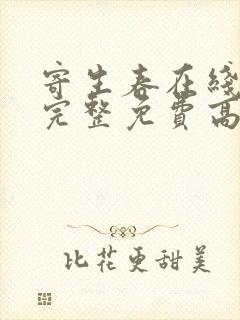 寄生春在线
完整免費高
比花更甜美